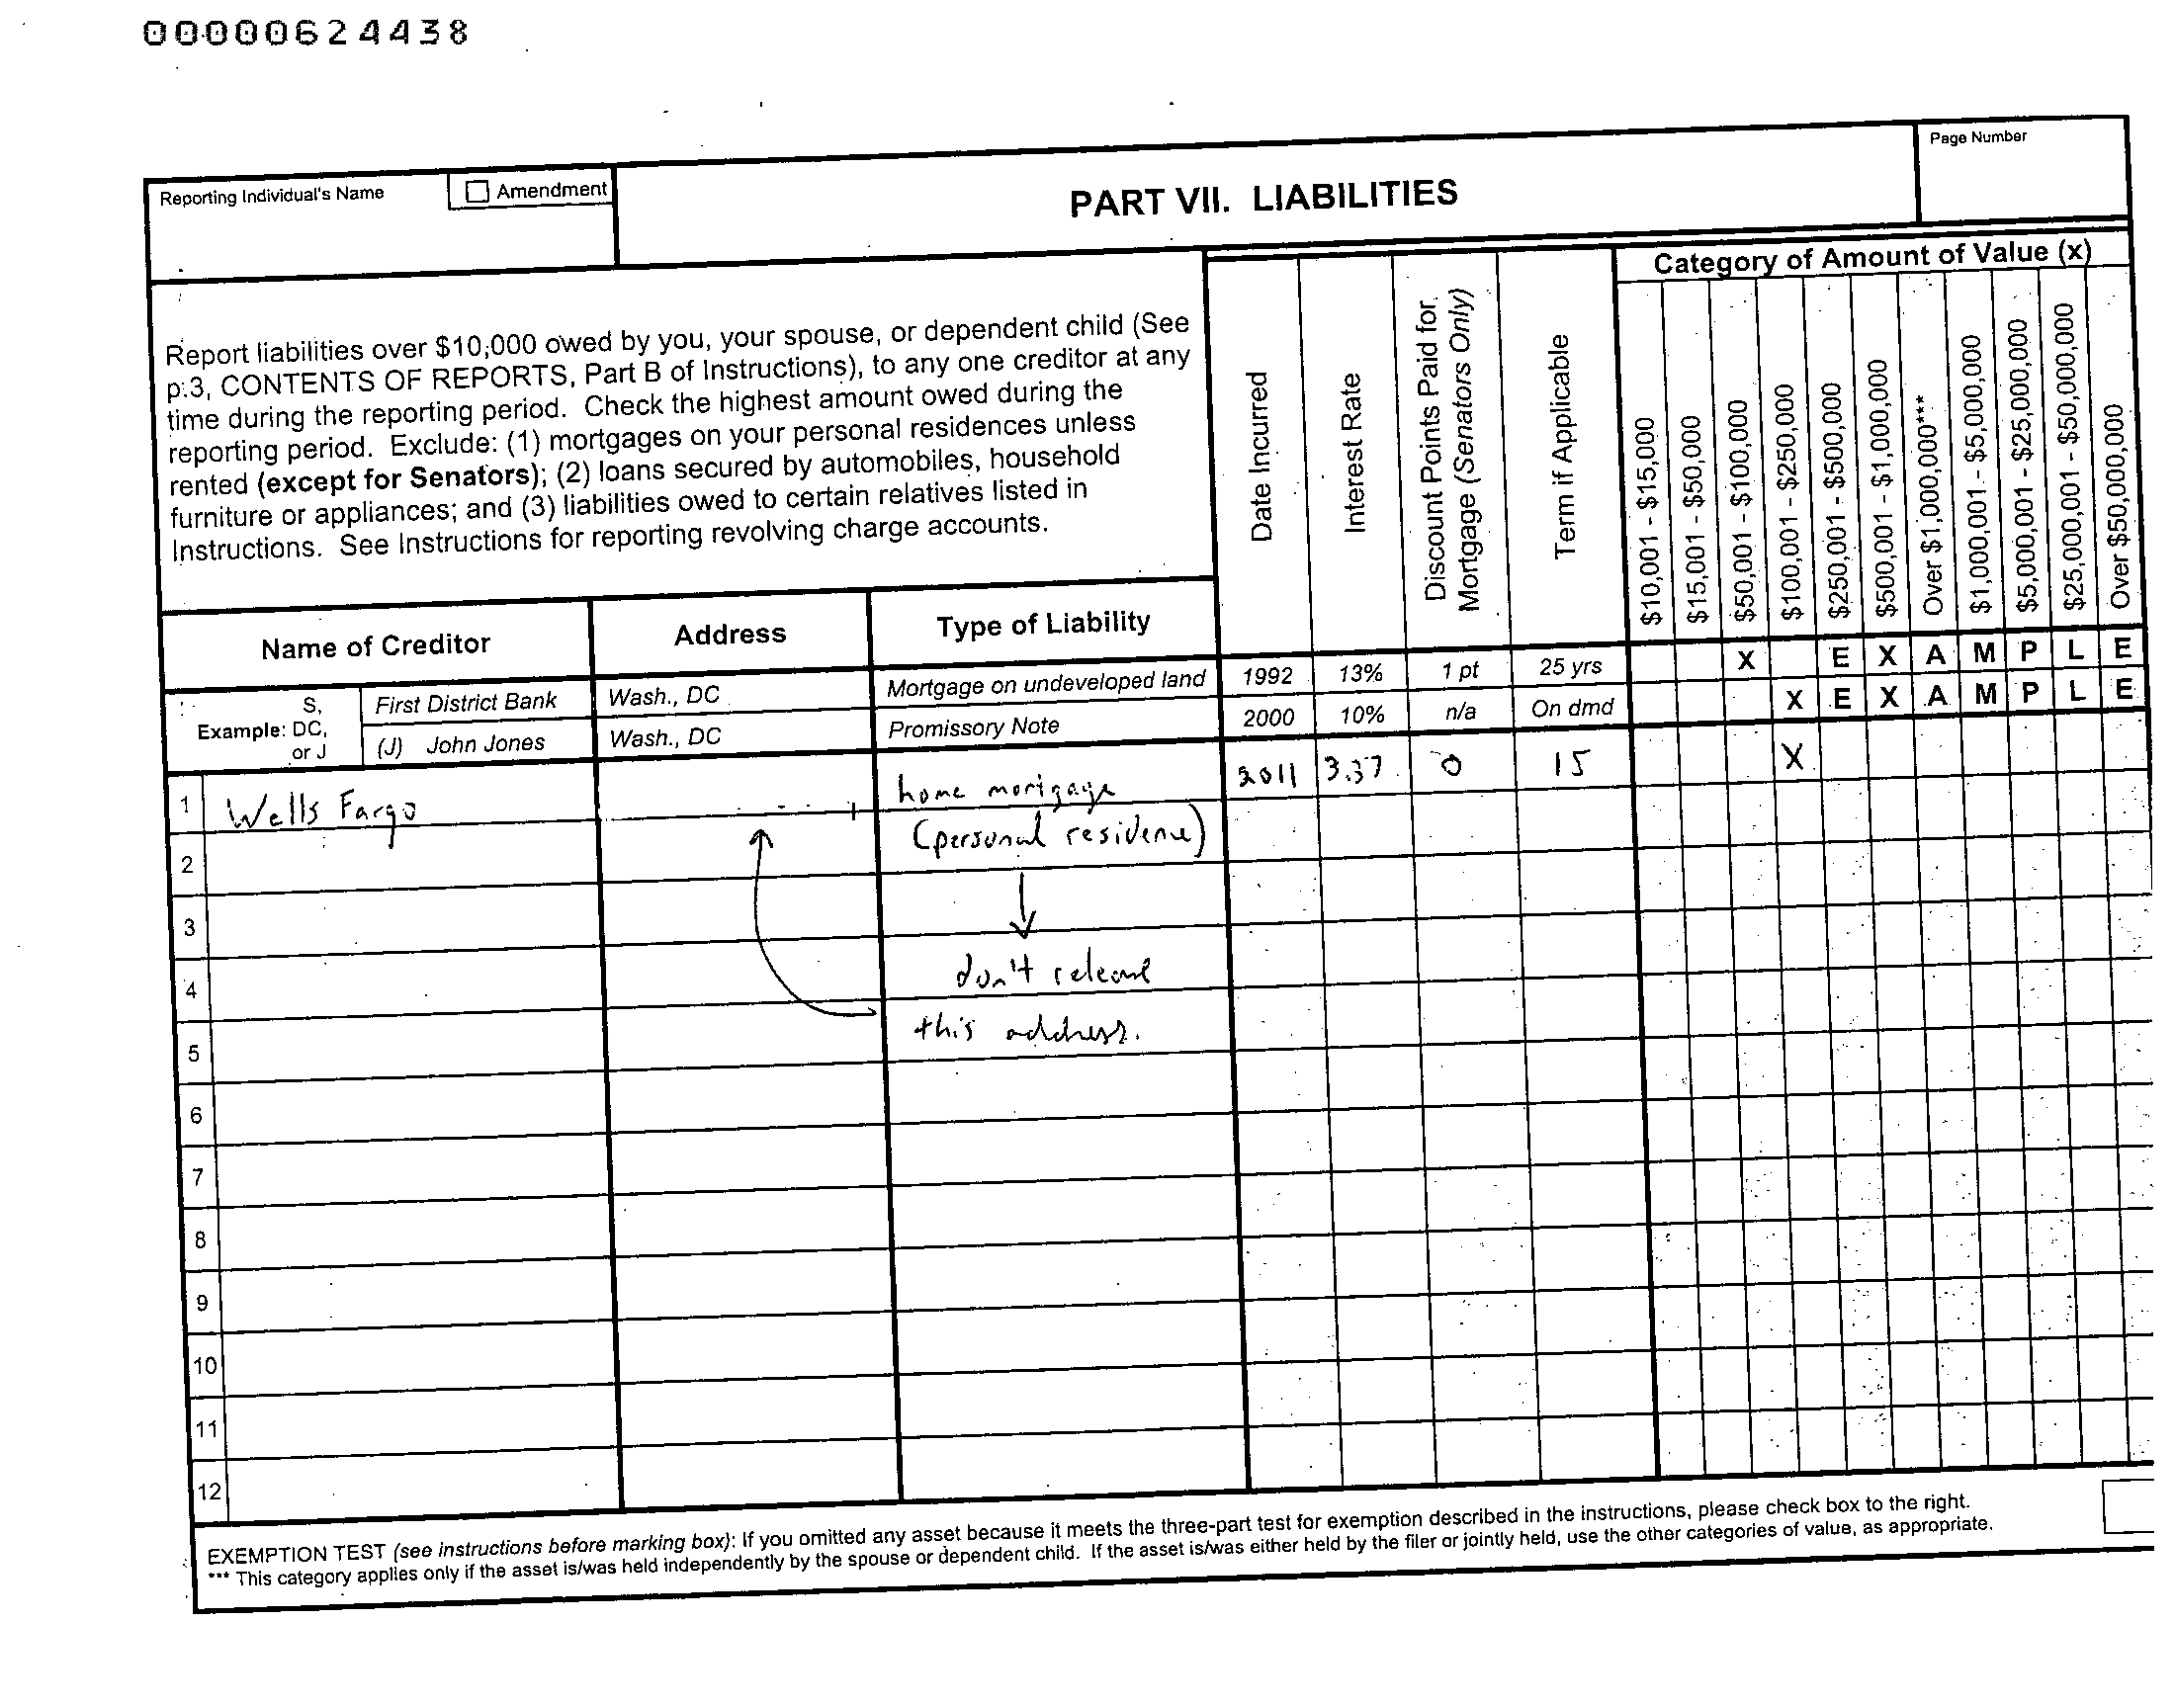 00000624438
Reporting Individual's Name
Amendment
PART VII. LIABILITIES
Page Number
Report liabilities over $10,000 owed by you, your spouse, or dependent child (See
p.3, CONTENTS OF REPORTS, Part B of Instructions), to any one creditor at any
time during the reporting period. Check the highest amount owed during the
reporting period. Exclude: (1) mortgages on your personal residences unless
rented (except for Senators); (2) loans secured by automobiles, household
furniture or appliances; and (3) liabilities owed to certain relatives listed in
Instructions. See Instructions for reporting revolving charge accounts.
Date Incurred
Interest Rate
Discount Points Paid for
Mortgage (Senators Only)
Term if Applicable
Category of Amount of Value (x)
$10,001 - $15,000
$15,001 - $50,000
$50,001 - $100,000
$100,001 - $250,000
$250,001 - $500,000
$500,001 - $1,000,000
Over $1,000,000***
$1,000,001 - $5,000,000
$5,000,001 - $25,000,000
$25,000,001 - $50,000,000
Over $50,000,000
Name of Creditor Address Type of Liability
Example: S, DC, or J
First District Bank Wash., DC Mortgage on undeveloped land 1992 13% 1 pt 25 yrs X E X A M P L E
(J) John Jones Wash., DC Promissory Note 2000 10% n/a On dmd X E X A M P L E
1 Wells Fargo home mortgage 2011 3.37 0 15 X
2 (personal residence)
3
4 don't release
5 this address.
6
7
8
9
10
11
12
EXEMPTION TEST (see instructions before marking box): If you omitted any asset because it meets the three-part test for exemption described in the instructions, please check box to the right.
*** This category applies only if the asset is/was held independently by the spouse or dependent child. If the asset is/was either held by the filer or jointly held, use the other categories of value, as appropriate.